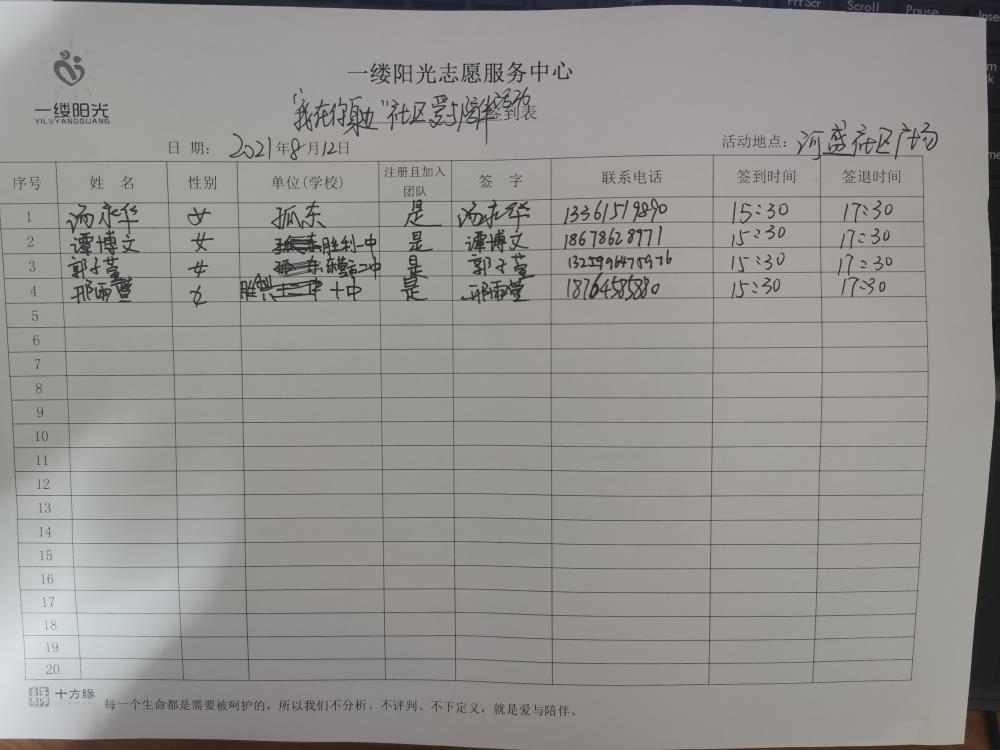 一缕阳光
YILVYANGGUANG
一缕阳光志愿服务中心
"我在你身边"社区爱与陪伴活动签到表
日 期： 2021年8月12日 活动地点：河盛社区广场
序号 姓 名 性别 单位(学校) 注册且加入团队 签 字 联系电话 签到时间 签退时间
1 汤永华 女 孤东 是 汤永华 13361519890 15:30 17:30
2 谭博文 女 胜利一中 是 谭博文 18678628971 15:30 17:30
3 郭子萱 女 二中 是 郭子萱 15:30 17:30
4 邢雨萱 女 十中 是 邢雨萱 18764585880 15:30 17:30
5
6
7
8
9
10
11
12
13
14
15
16
17
18
19
20
十方缘
每一个生命都是需要被呵护的，所以我们不分析、不评判、不下定义，就是爱与陪伴。
PrtScr
Scroll
Pause
Inse